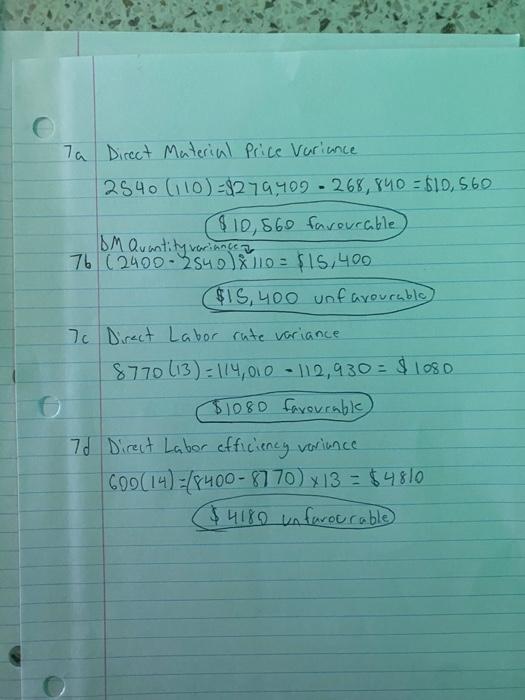 7a Direct Material Price Variance
2540 (110) = $279,400 - 268,840 = $10,560
$10,560 favourable
DM Quantity variance
7b (2400 - 2540) x 110 = $15,400
$15,400 unfavourable
7c Direct Labor rate variance
8770 (13) = 114,010 - 112,930 = $1080
$1080 favourable
7d Direct Labor efficiency variance
600(14) = (8400 - 8770) x 13 = $4810
$4180 unfavourable